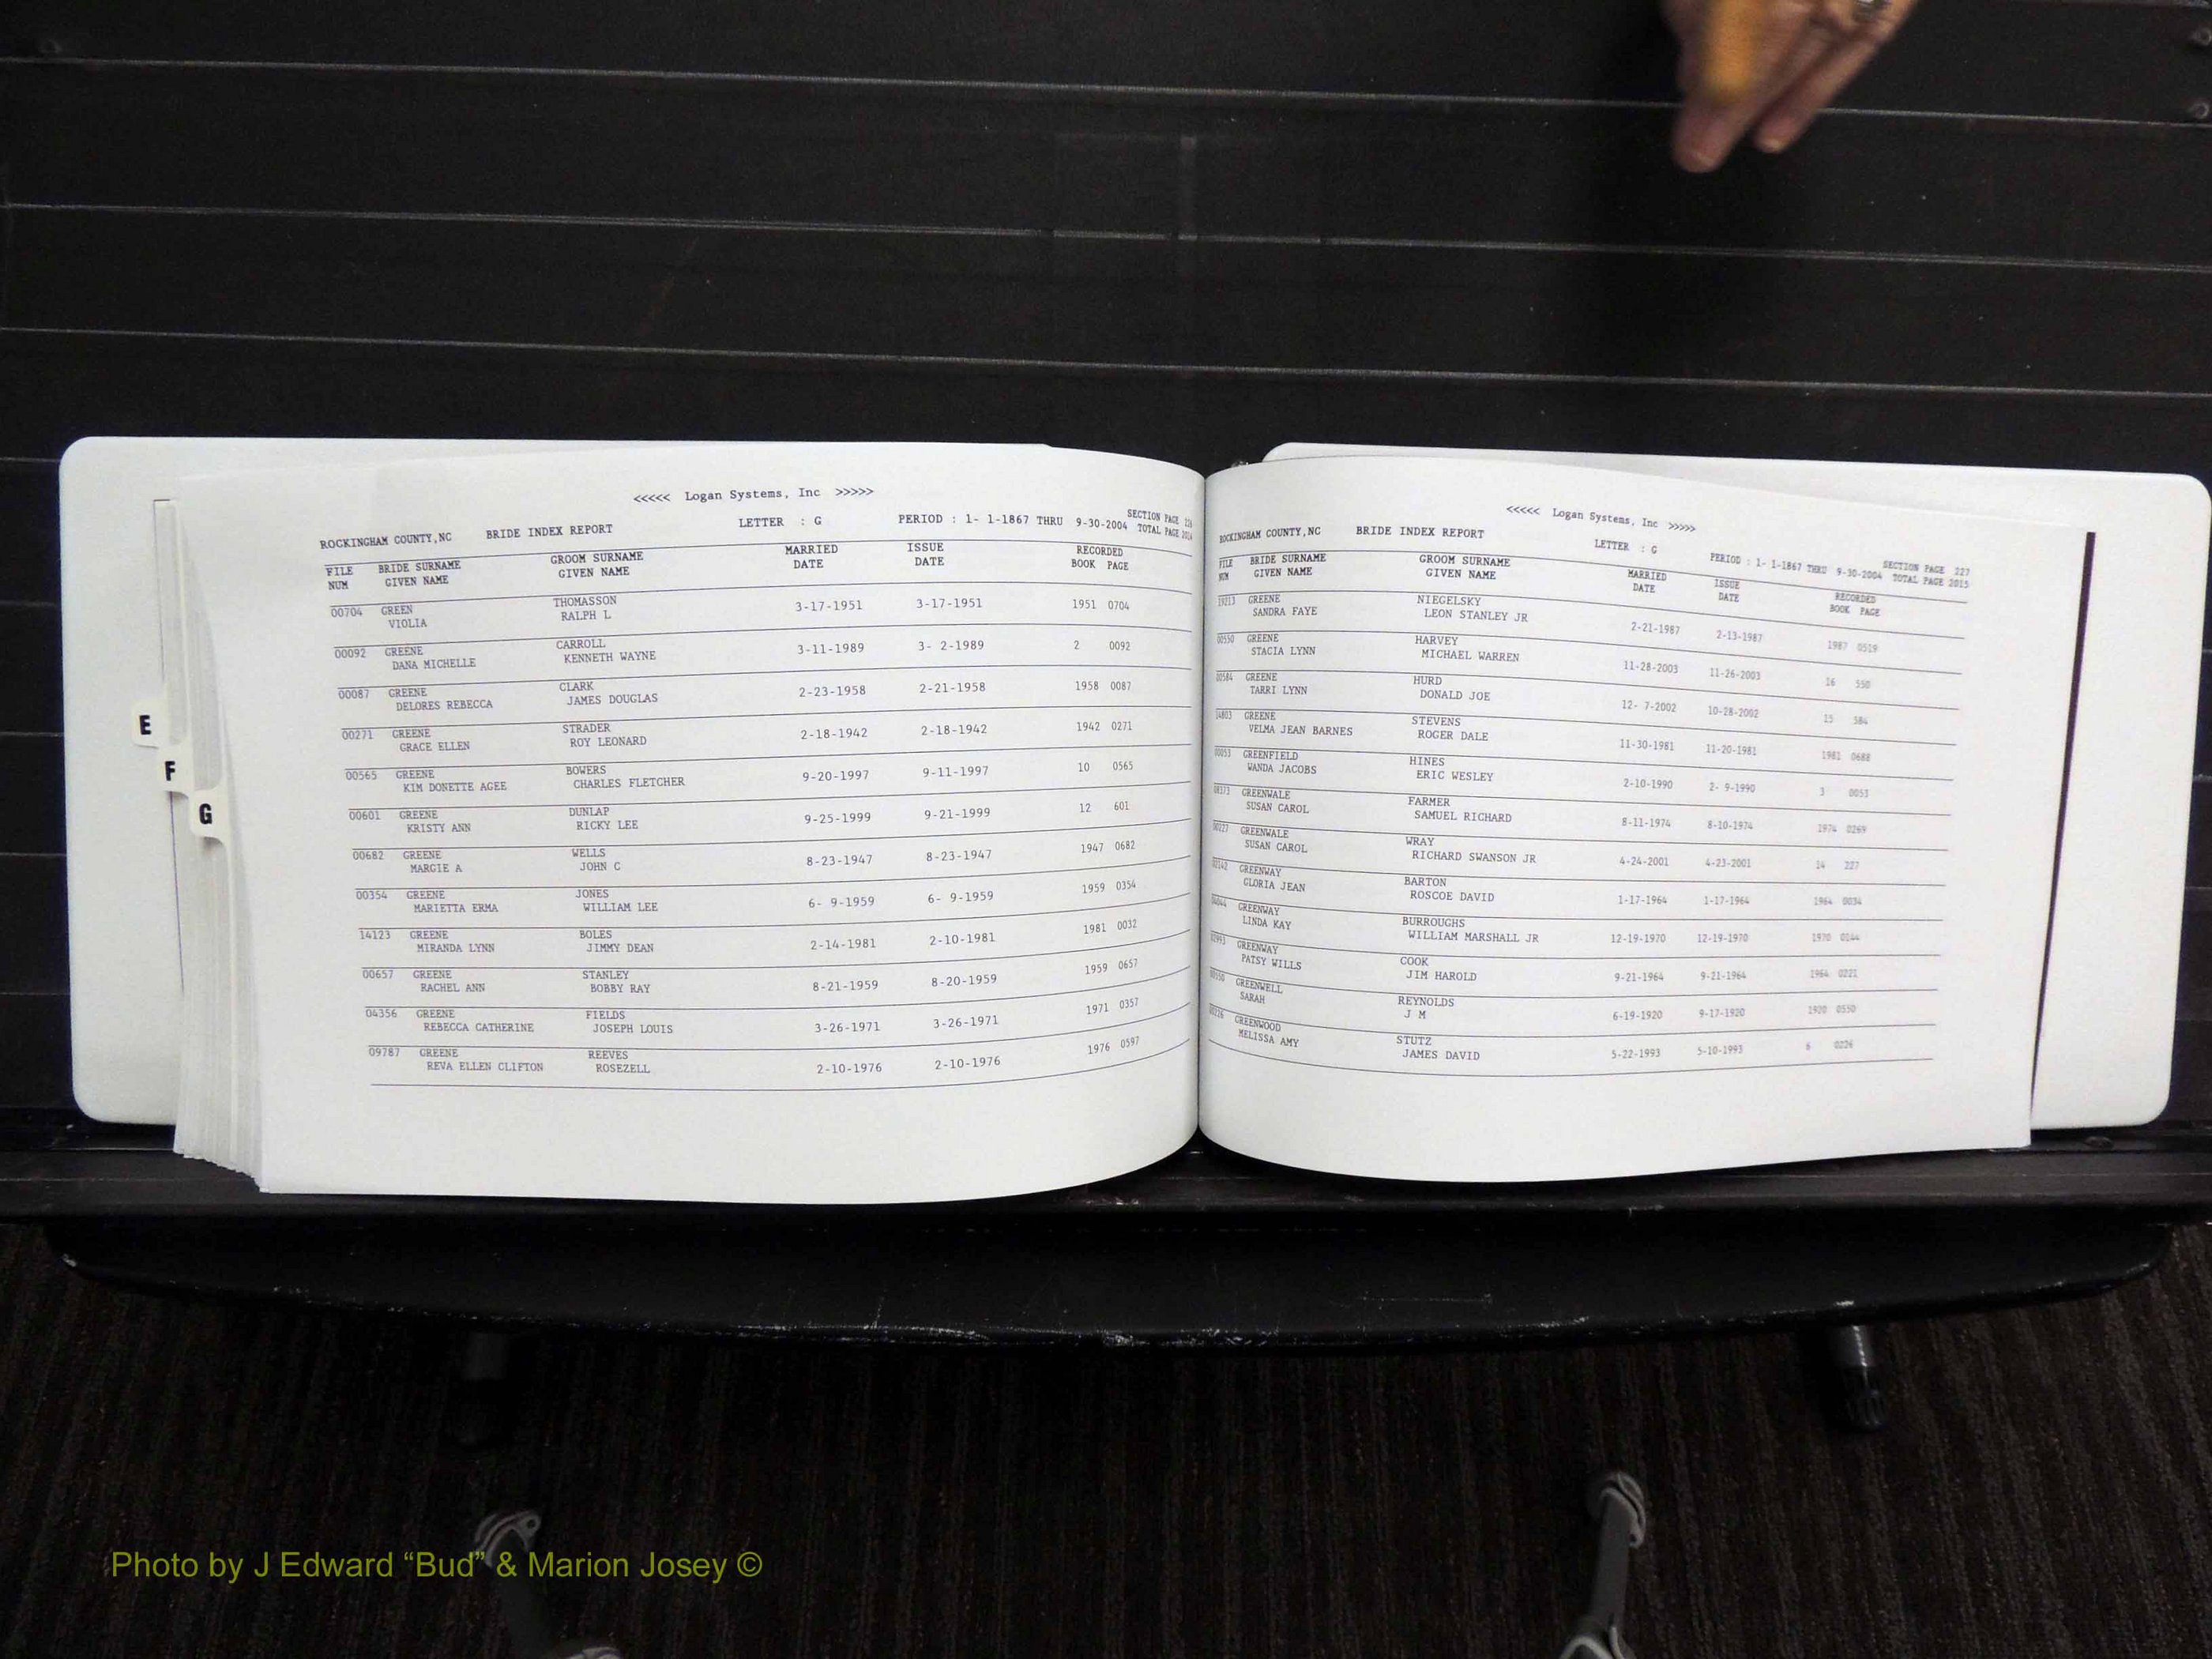 E
F
G
<<<<< Logan Systems, Inc >>>>>
ROCKINGHAM COUNTY,NC BRIDE INDEX REPORT LETTER : G PERIOD : 1- 1-1867 THRU 9-30-2004 SECTION PAGE 226
TOTAL PAGE 2014
FILE BRIDE SURNAME GROOM SURNAME MARRIED ISSUE RECORDED
NUM GIVEN NAME GIVEN NAME DATE DATE BOOK PAGE
00704 GREEN THOMASSON 3-17-1951 3-17-1951 1951 0704
VIOLIA RALPH L
00092 GREENE CARROLL 3-11-1989 3- 2-1989 2 0092
DANA MICHELLE KENNETH WAYNE
00087 GREENE CLARK 2-23-1958 2-21-1958 1958 0087
DELORES REBECCA JAMES DOUGLAS
00271 GREENE STRADER 2-18-1942 2-18-1942 1942 0271
GRACE ELLEN ROY LEONARD
00565 GREENE BOWERS 9-20-1997 9-11-1997 10 0565
KIM DONETTE AGEE CHARLES FLETCHER
00601 GREENE DUNLAP 9-25-1999 9-21-1999 12 601
KRISTY ANN RICKY LEE
00682 GREENE WELLS 8-23-1947 8-23-1947 1947 0682
MARGIE A JOHN C
00354 GREENE JONES 6- 9-1959 6- 9-1959 1959 0354
MARIETTA ERMA WILLIAM LEE
14123 GREENE BOLES 2-14-1981 2-10-1981 1981 0032
MIRANDA LYNN JIMMY DEAN
00657 GREENE STANLEY 8-21-1959 8-20-1959 1959 0657
RACHEL ANN BOBBY RAY
04356 GREENE FIELDS 3-26-1971 3-26-1971 1971 0357
REBECCA CATHERINE JOSEPH LOUIS
09787 GREENE REEVES 2-10-1976 2-10-1976 1976 0597
REVA ELLEN CLIFTON ROSEZELL
<<<<< Logan Systems, Inc >>>>>
ROCKINGHAM COUNTY,NC BRIDE INDEX REPORT LETTER : G PERIOD : 1- 1-1867 THRU 9-30-2004 SECTION PAGE 227
TOTAL PAGE 2015
FILE BRIDE SURNAME GROOM SURNAME MARRIED ISSUE RECORDED
NUM GIVEN NAME GIVEN NAME DATE DATE BOOK PAGE
19213 GREENE NIEGELSKY 2-21-1987 2-13-1987 1987 0519
SANDRA FAYE LEON STANLEY JR
00550 GREENE HARVEY 11-28-2003 11-26-2003 16 550
STACIA LYNN MICHAEL WARREN
00584 GREENE HURD 12- 7-2002 10-28-2002 15 584
TARRI LYNN DONALD JOE
14803 GREENE STEVENS 11-30-1981 11-20-1981 1981 0688
VELMA JEAN BARNES ROGER DALE
00053 GREENFIELD HINES 2-10-1990 2- 9-1990 3 0053
WANDA JACOBS ERIC WESLEY
08373 GREENWALE FARMER 8-11-1974 8-10-1974 1974 0269
SUSAN CAROL SAMUEL RICHARD
00227 GREENWALE WRAY 4-24-2001 4-23-2001 14 227
SUSAN CAROL RICHARD SWANSON JR
GREENWAY BARTON 1-17-1964 1-17-1964 1964 0034
GLORIA JEAN ROSCOE DAVID
GREENWAY BURROUGHS 12-19-1970 12-19-1970 1970
LINDA KAY WILLIAM MARSHALL JR
GREENWAY COOK 9-21-1964 9-21-1964 1964 0221
PATSY WILLS JIM HAROLD
00550 GREENWELL REYNOLDS 6-19-1920 9-17-1920 1920 0550
SARAH J M
00226 GREENWOOD STUTZ 5-22-1993 5-10-1993 6 0226
MELISSA AMY JAMES DAVID
Photo by J Edward “Bud” & Marion Josey ©